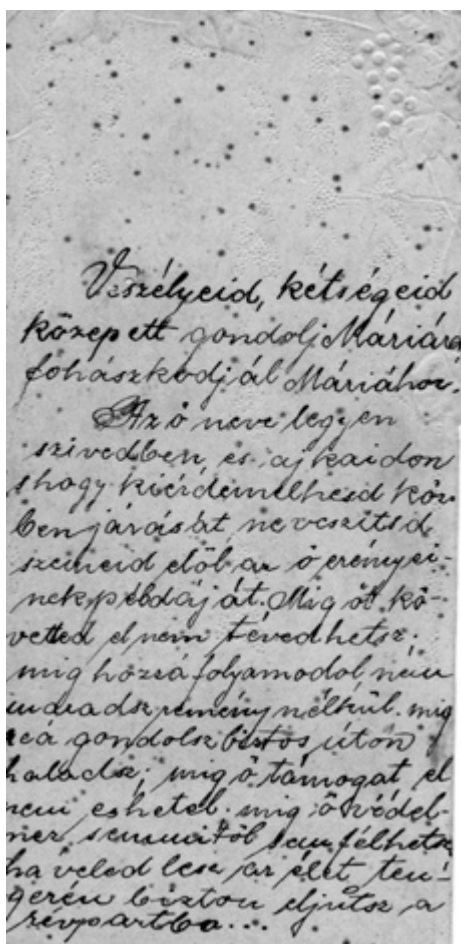 Veszélyeid, kétségeid
közepett gondolj Máriára
fohászkodjál Máriához.
Az ő neve legyen
szivedben és ajkaidon
s hogy kiérdemelhesd köz-
benjárását, ne veszitsd
szemeid elöl az ő erényei-
nek példáját. Mig őt kö-
veted el nem tévedhetsz.
mig hozzá folyamodol nem
maradsz remény nélkül. mig
reá gondolsz biztos úton
haladsz; mig ő támogat el
nem eshetel. mig ő védel-
mez semmitől sem félhetsz
ha veled lesz az élet ten-
gerén bizton eljutsz a
révpartba...